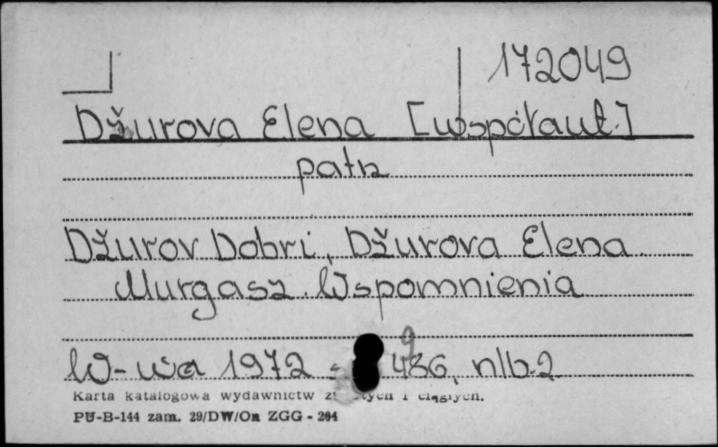 172049
Džurova Elena [współaut.]
patrz
Džurov Dobri, Džurova Elena.
Murgasz. Wspomnienia
W-wa 1972 s. 486, nlb. 2
Karta katalogowa wydawnictw i ciągłych.
PU-B-144 zam. 29/DW/On ZGG - 264